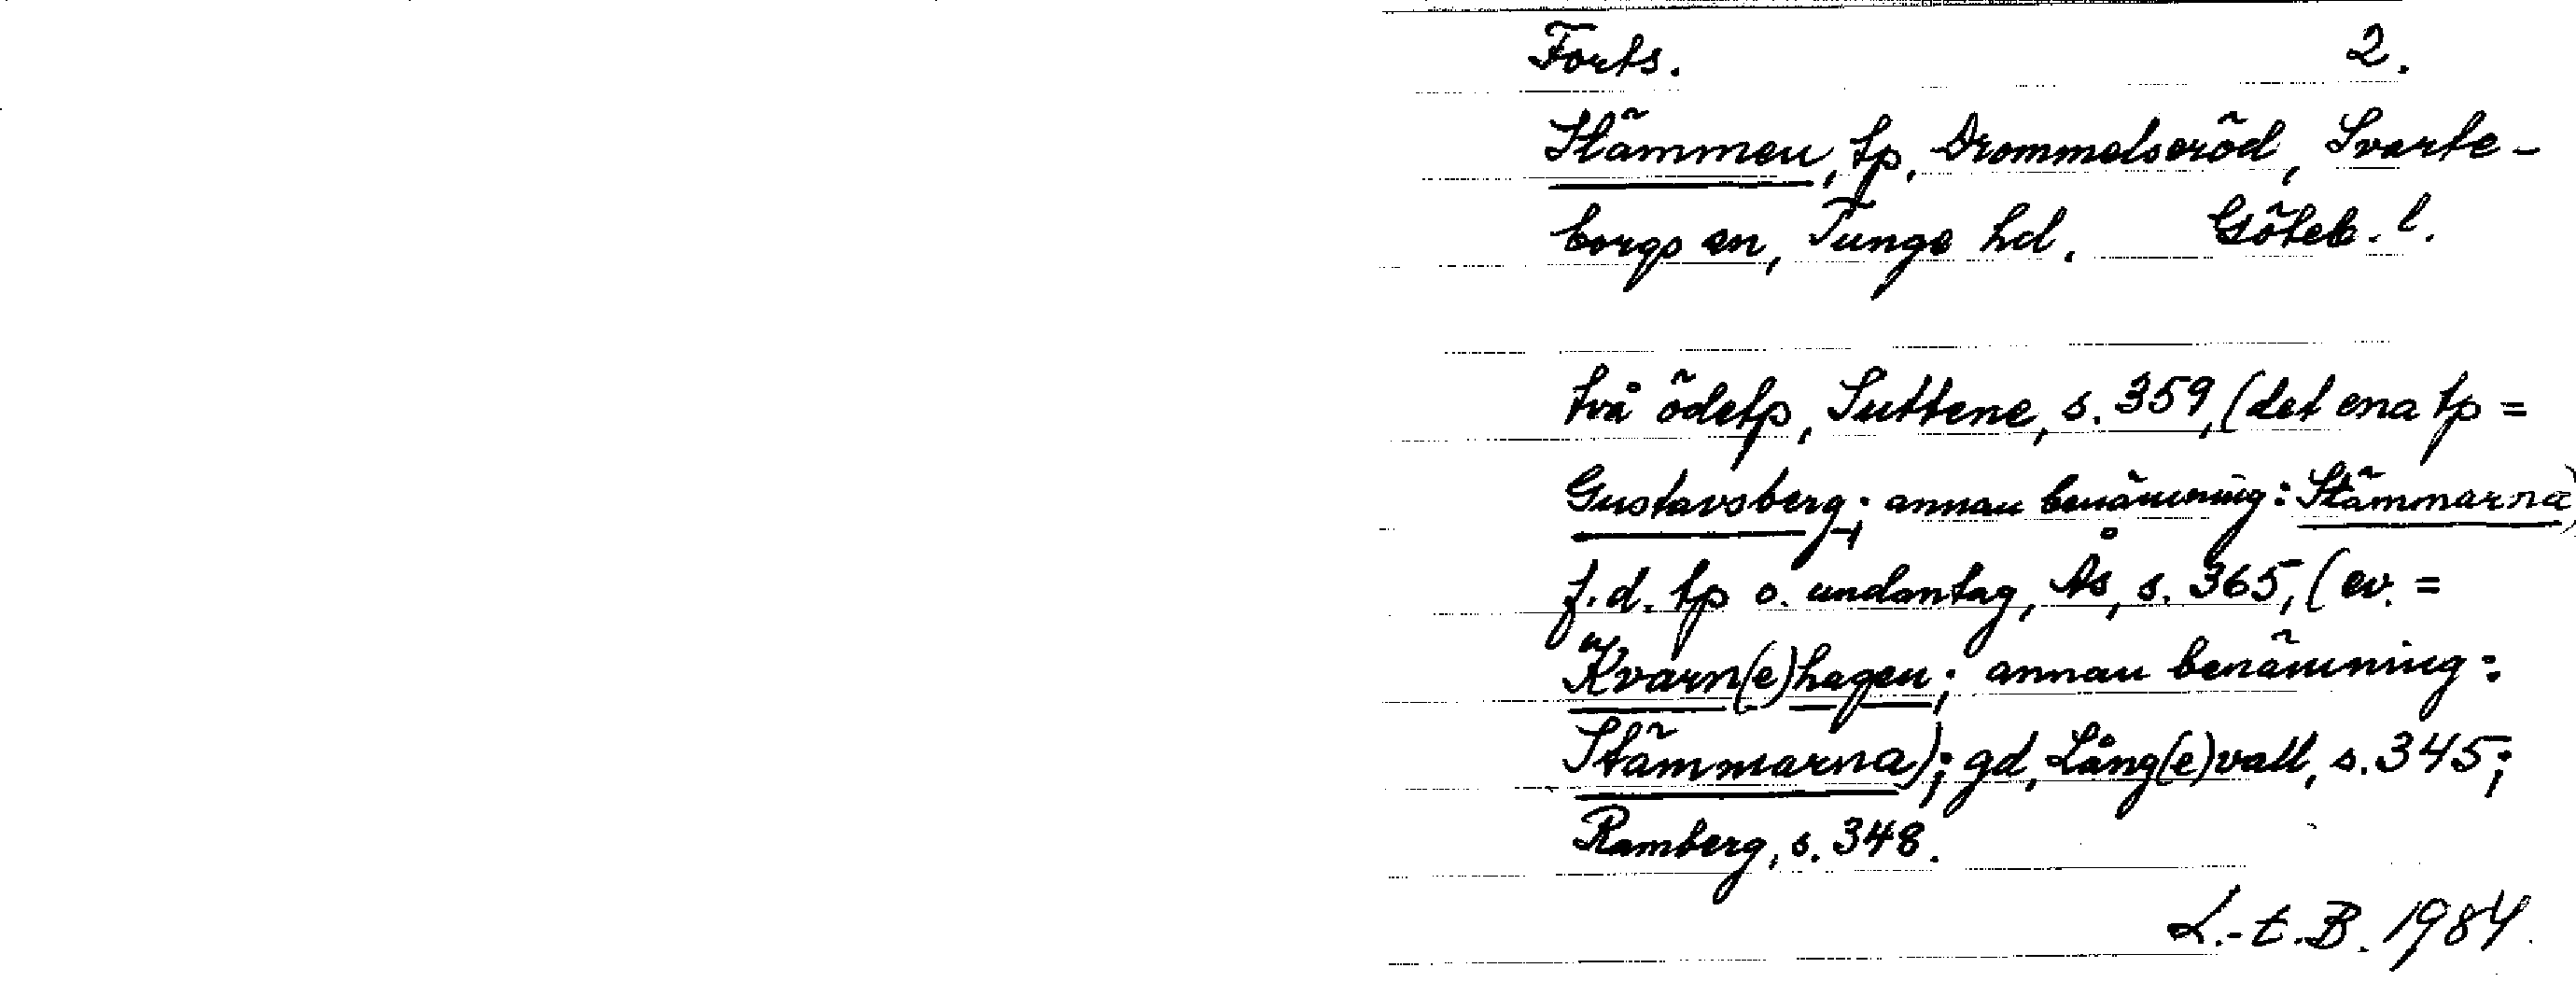 Forts. 2.
Stämmen, tp, Drommelseröd, Svarte-
borgs sn, Tunge hd. Göteb. l.
två ödetp, Suttene, s. 359, (det ena tp =
Gustavsberg; annan benämning: Stämmarna)
f.d. tp o. undantag, Ås, s. 365, (ev. =
Kvarn(e)hagen; annan benämning:
Stämmarna); gd, Lång(e)vall, s. 345;
Ramberg, s. 348.
L.-t. B. 1984.